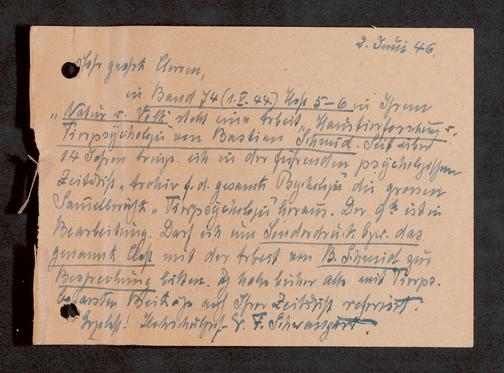 2. Juni 46.
Sehr geehrte Herren,
in Band 74 (1.V.44) Heft 5-6 in Ihrem
"Natur u. Volk" steht eine Arbeit "Haustierforschung u.
Tierpsychologie von Bastian Schmid. Seit über
14 Jahren bringe ich in der führenden psychologischen
Zeitschrift "Archiv f. d. gesamte Psychologie" die grossen
Sammelberichte "Tierpsychologie" heraus. Der 9te ist in
Bearbeitung. Darf ich um Sonderdruck bzw. das
gesamte Heft mit der Arbeit von B. Schmid zur
Besprechung bitten. Ich habe bisher alle mit Tierps.
befassten Beiträge aus Ihrer Zeitschrift referiert.
F. Schwangart.